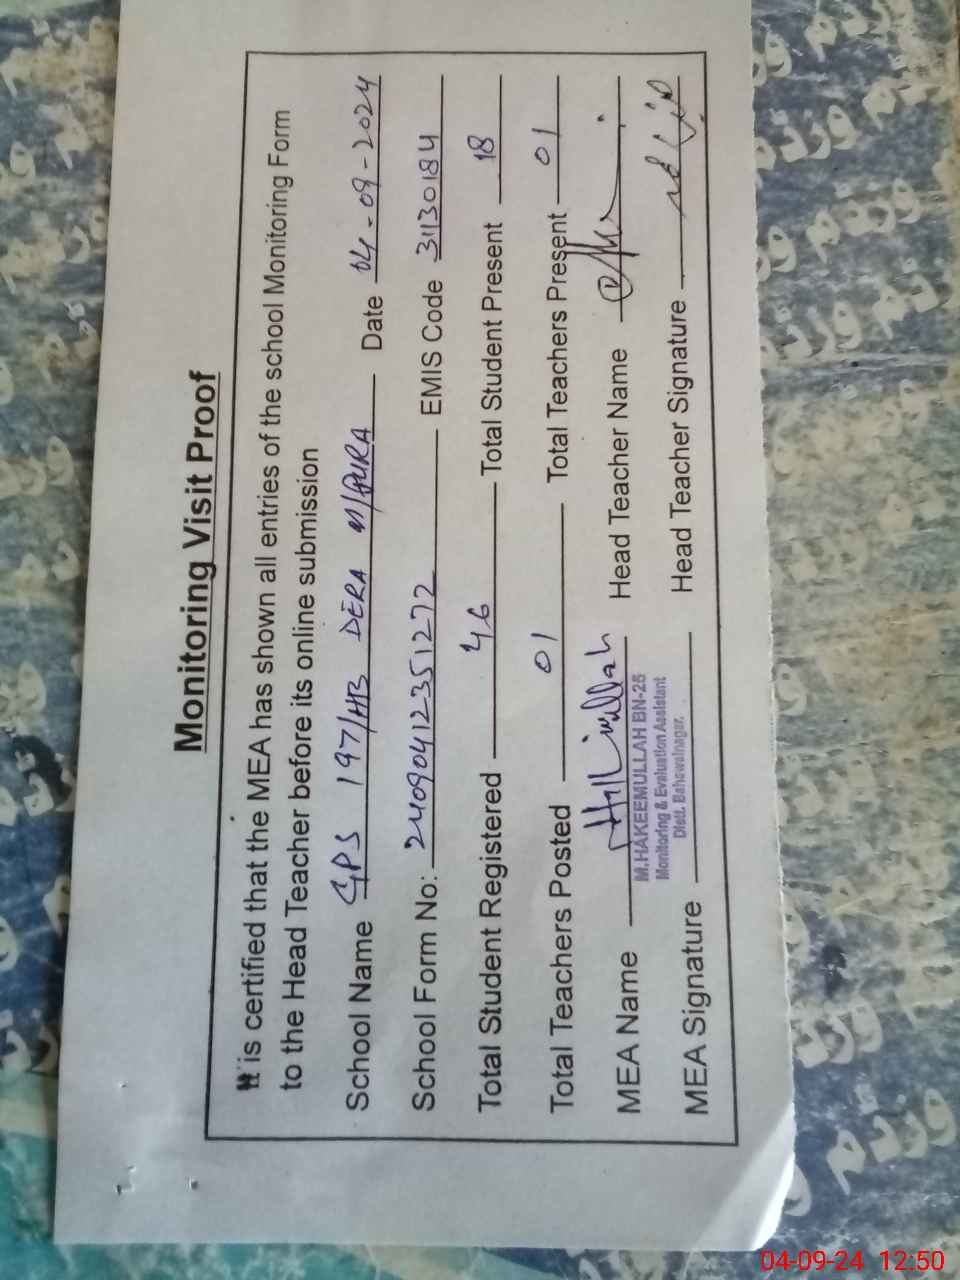 Monitoring Visit Proof
It is certified that the MEA has shown all entries of the school Monitoring Form
to the Head Teacher before its online submission
School Name GPS 197/HB DERA M/PURA Date 04-09-2024
School Form No: 24090412351272 EMIS Code 31130184
Total Student Registered 46 Total Student Present 18
Total Teachers Posted 01 Total Teachers Present 01
MEA Name Head Teacher Name
M.HAKEEMULLAH BN-25
Monitoring & Evaluation Assistant
Distt. Bahawalnagar.
MEA Signature Head Teacher Signature
04-09-24 12:50